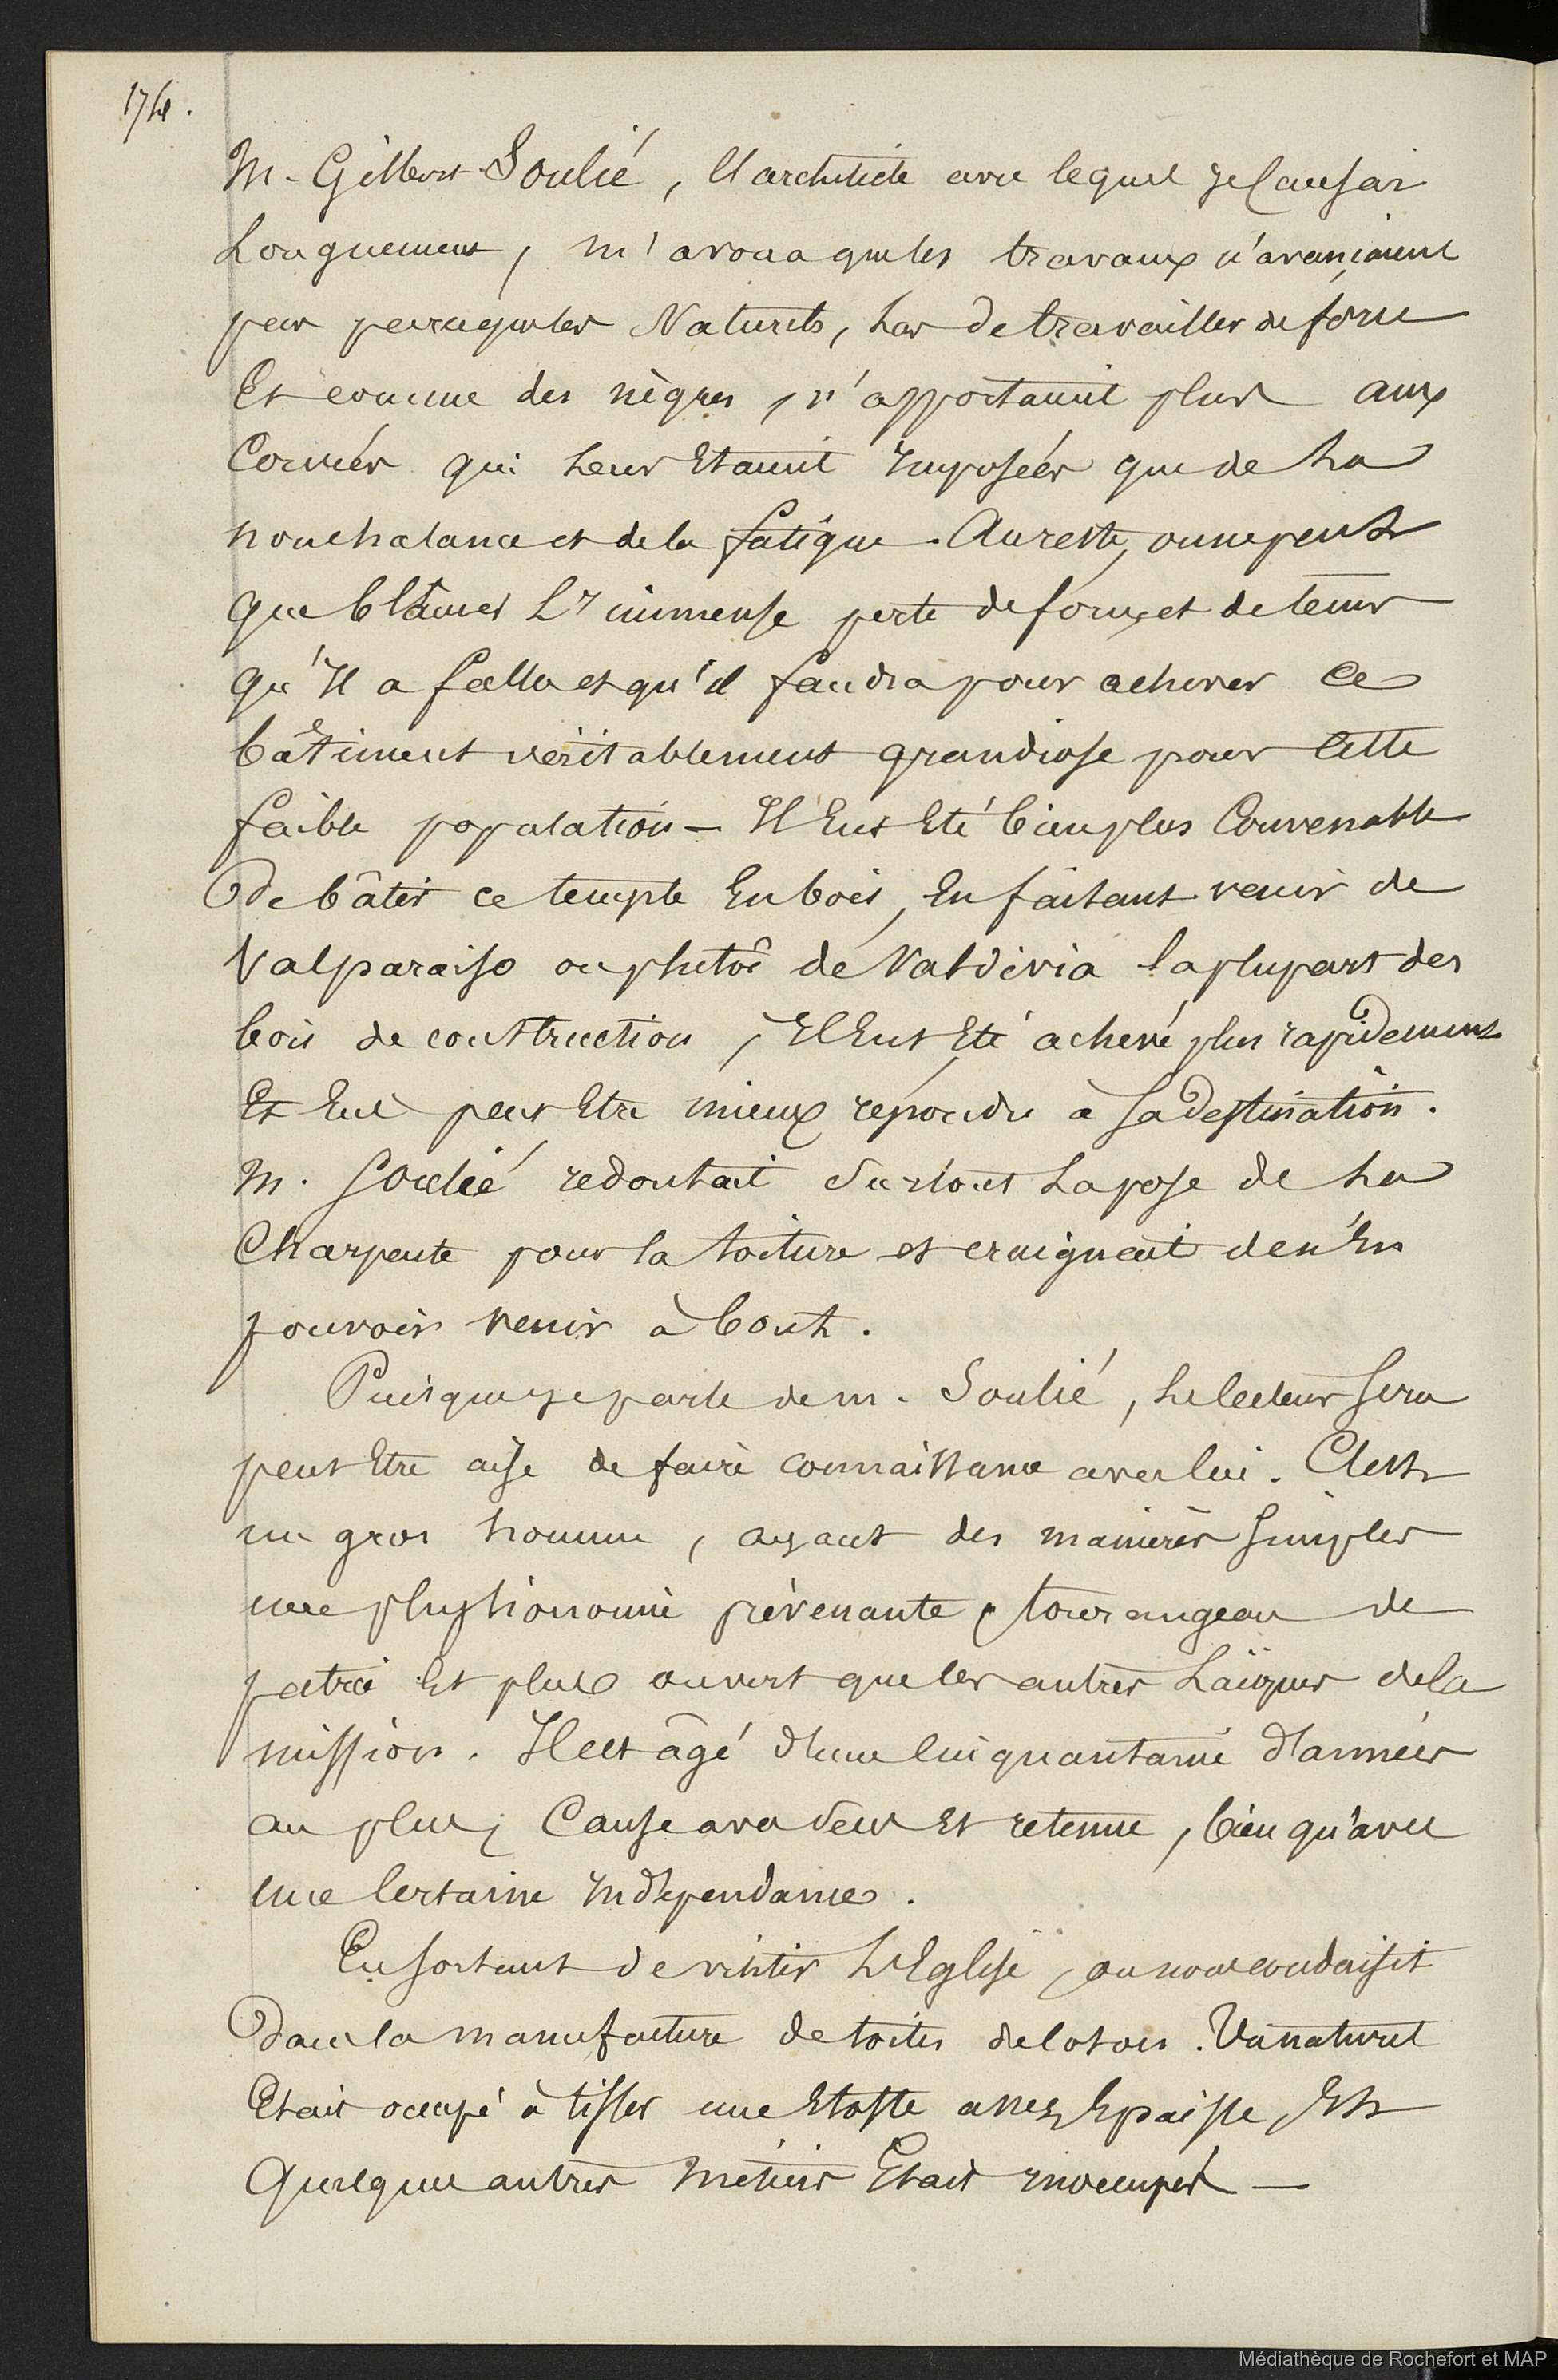 174.
M. Gilbert Soulié, l'architecte avec lequel je causai
Longuement, m'avoua que les travaux n'avançaient
peu parce que les Naturels, las de travailler de force
Et comme des nègres, n'apportaient plus aux
Corvées qui leur Etaient Imposées que de la
nonchalance et de la fatigue. Au reste, on ne peut
que blâmer Lr immense perte de force et de tems
qu'Il a fallu et qu'il faudra pour achever ce
bâtiment véritablement grandiose pour cette
faible population – Il Eut Eté bien plus Convenable
De bâtir ce temple En bois, En faisant venir de
Valparaiso ou plutôt de Valdivia la plupart des
bois de construction, Il Eut Eté achevé plus rapidement
Et Eut peut Etre mieux répondu à sa destination.
M. Soulié redoutait surtout La pose de la
Charpente pour la toiture et craignait de n'En
pouvoir venir à bout.
Puisque je parle de m. Soulié, le lecteur sera
peut Etre aise de faire connaissance avec lui. C'est
un gros homme, ayant des manières simples
une physionomie prévenante, tourangeau de
patrie Et plus ouvert que les autres Laïques de la
mission. Il est âgé d'une cinquantaine d'années
au plus; Cause avec sens Et retenue, bien qu'avec
une certaine Indépendance.
En sortant de visiter L'Eglise, on nous conduisit
Dans la manufacture de toiles de coton. Un naturel
Etait occupé à tisser une Etoffe assez Epaisse, Et
Quelques autres métiers Etait inoccupés –
Médiathèque de Rochefort et MAP